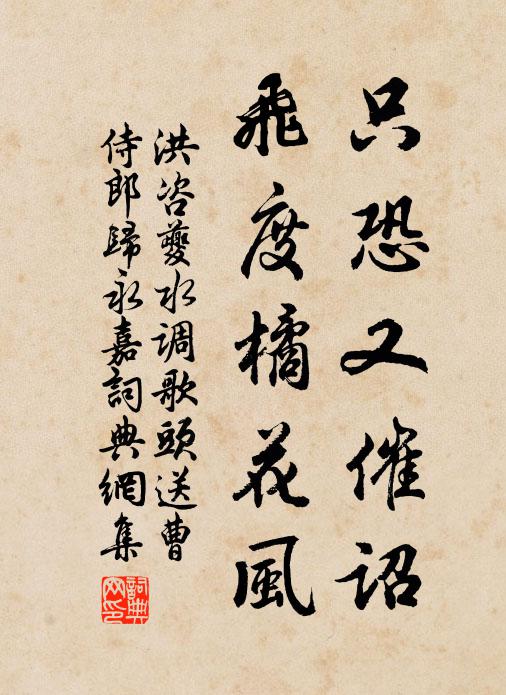 只恐又催詔
飛度橘花風
洪咨夔水调歌頭送曹
侍郎歸永嘉詞典網集
詞典網印